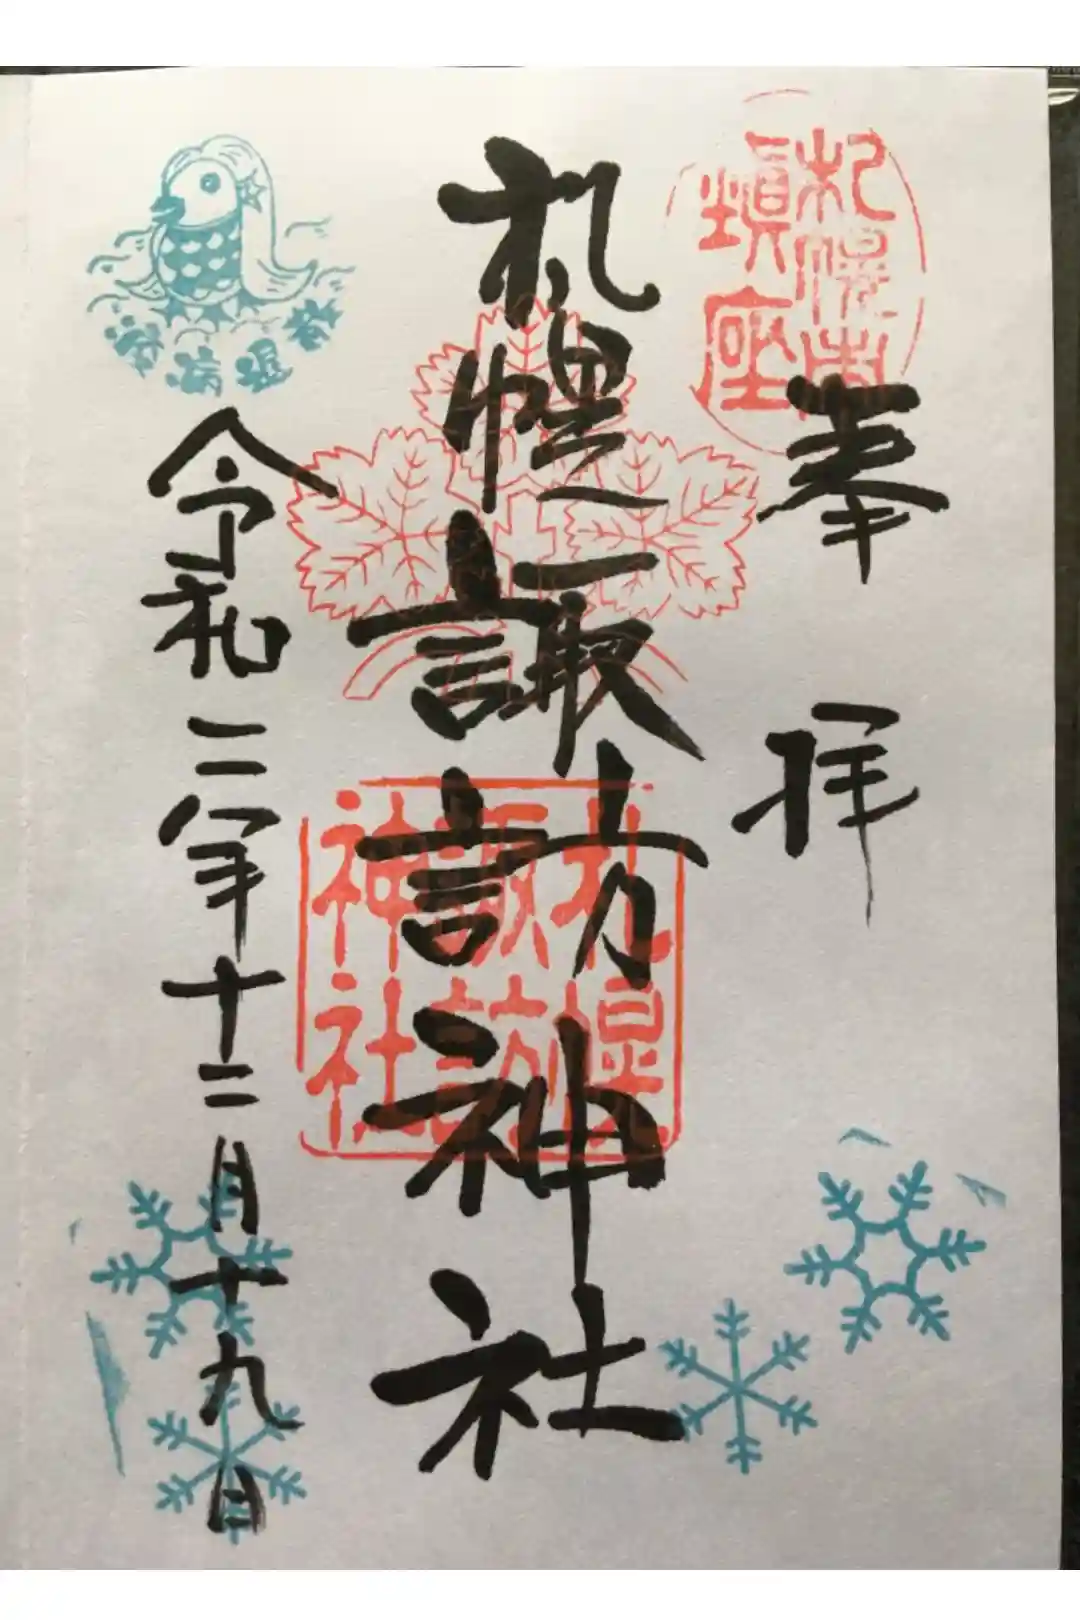 奉拝
札幌市
鎮座
札幌諏訪神社
札幌
諏訪
神社
疫病退散
令和二年十二月十九日